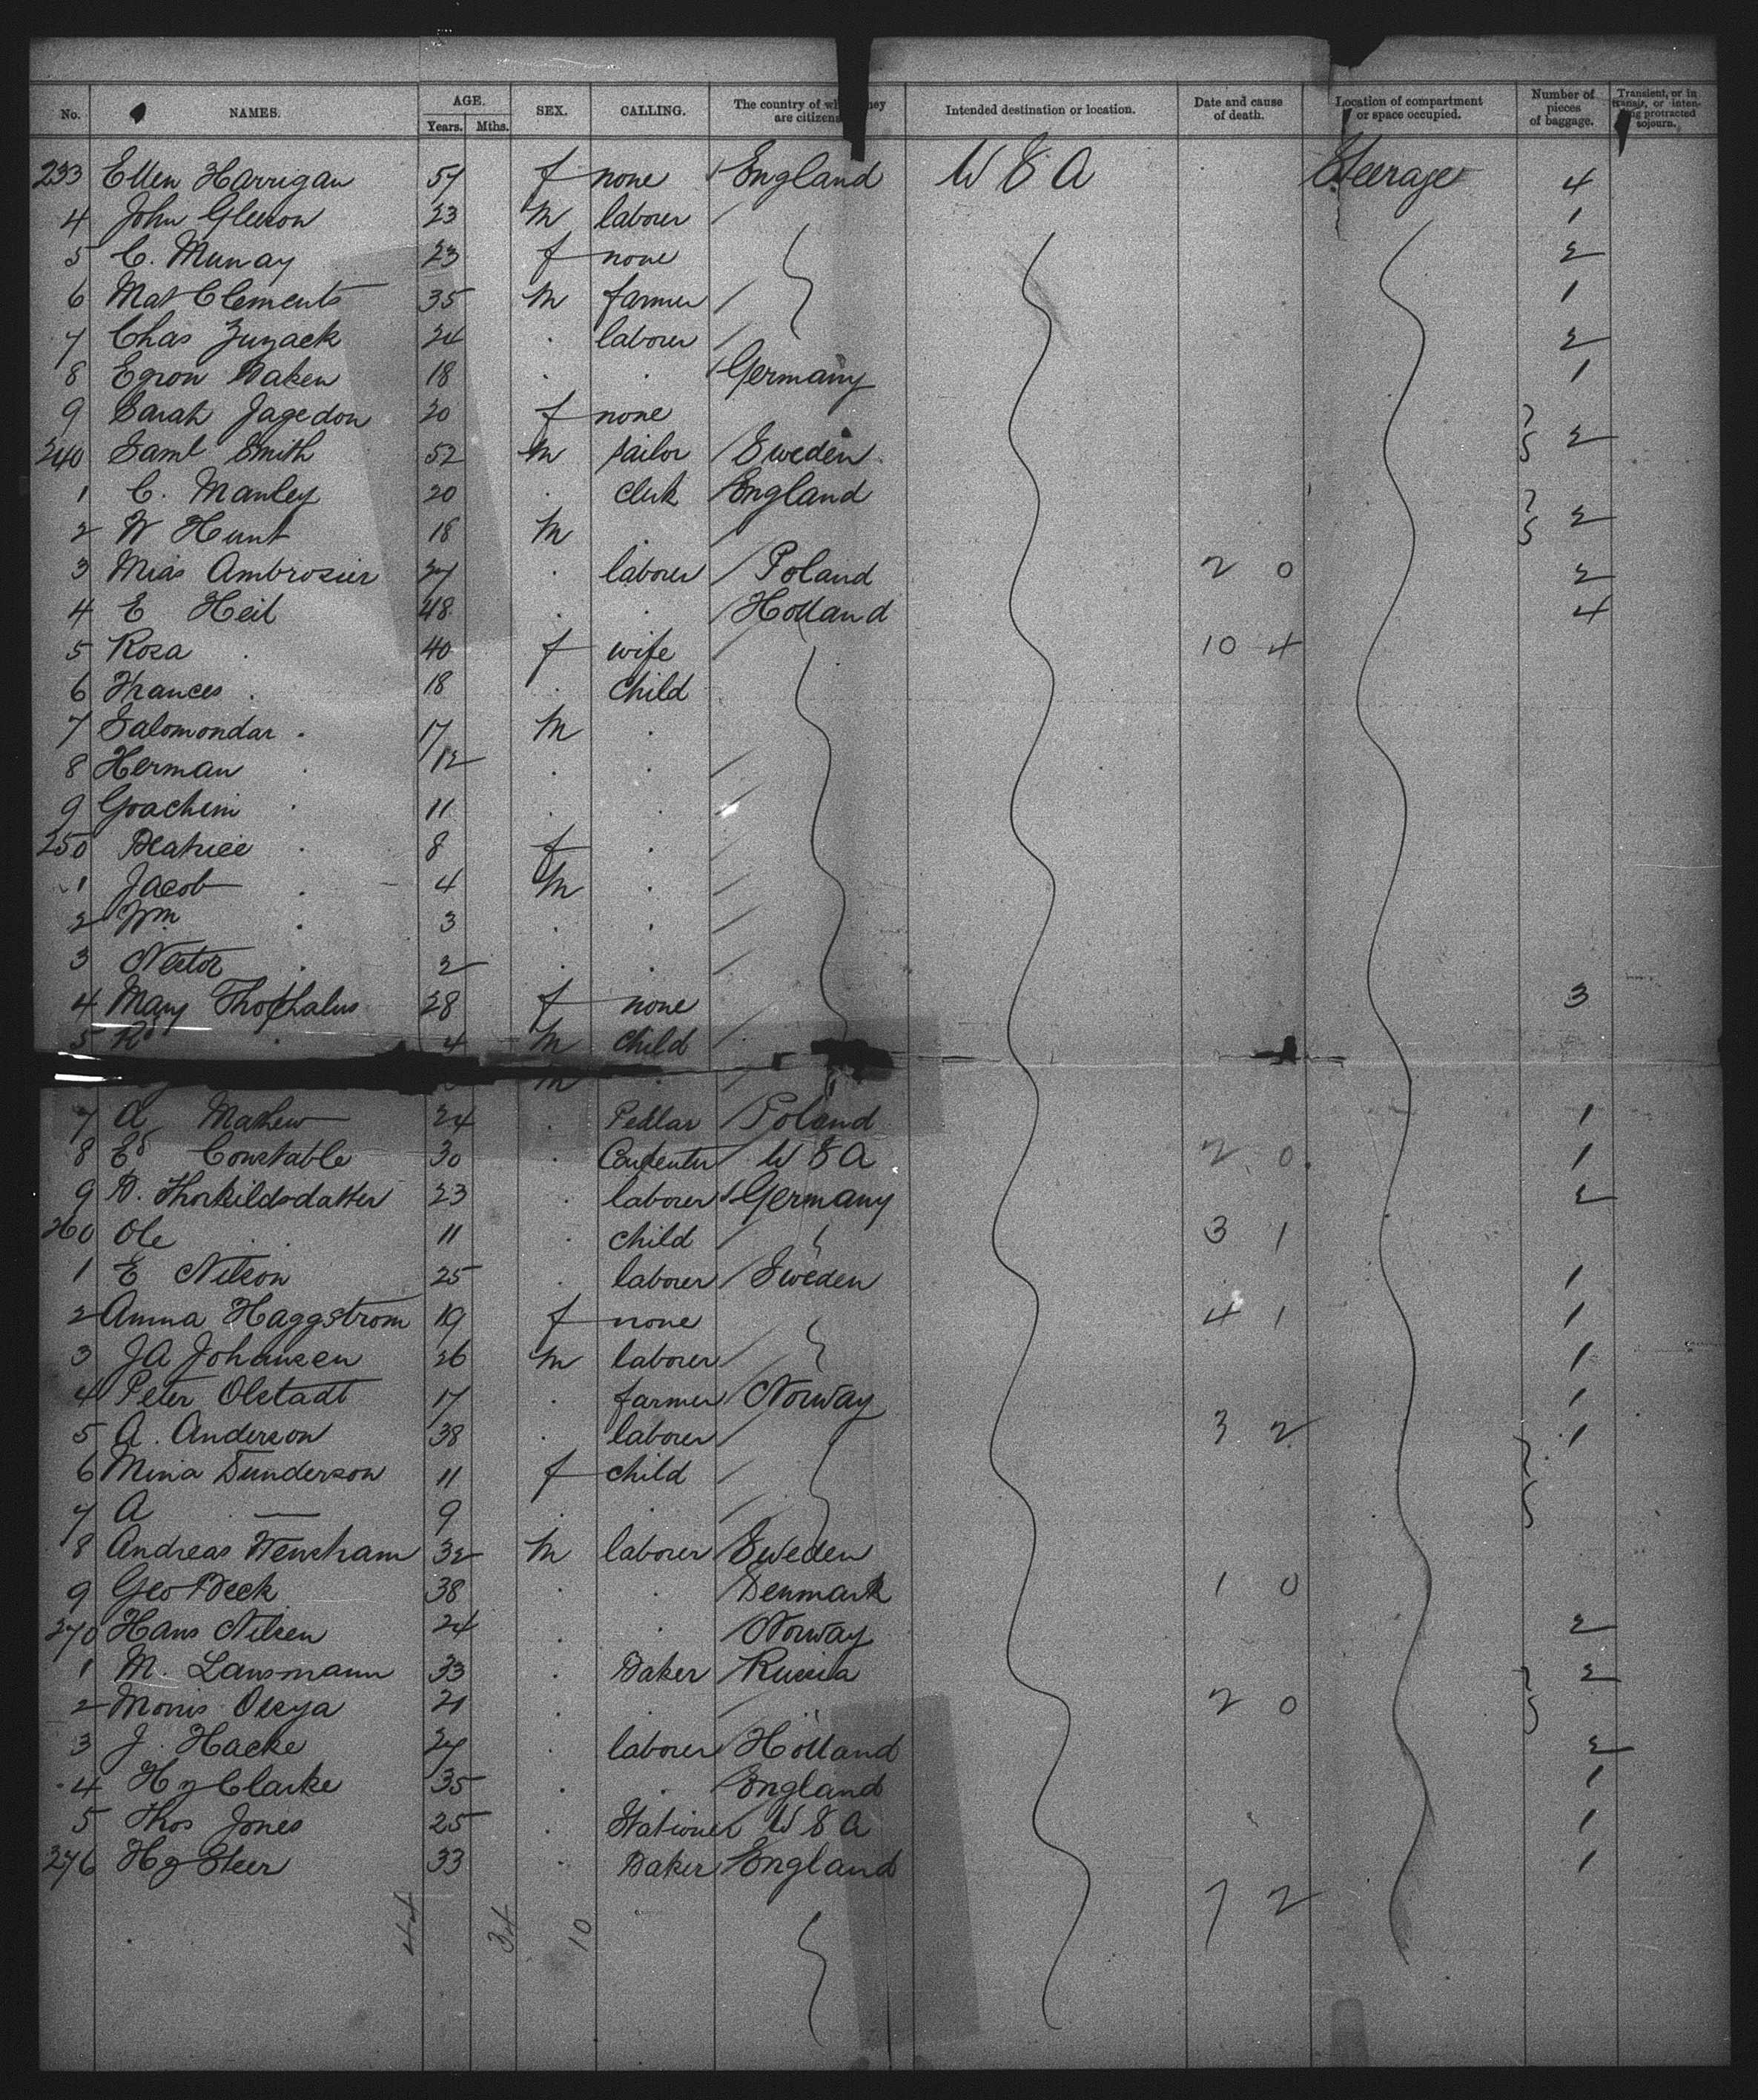 No. NAMES. AGE. Years. Mths. SEX. CALLING. The country of wh hey are citizens Intended destination or location. Date and cause of death. Location of compartment or space occupied. Number of pieces of baggage. Transient, or in transit, or inten- ing protracted sojourn.
233 Ellen Harrigan 57 f none England U S A Steerage 4
4 John Gleeson 23 M laborer / 1
5 C. Murray 23 f none 2
6 Mat Clements 35 M farmer / 1
7 Chas 24 . laborer / 2
8 Egron Baken 18 . . Germany 1
9 Sarah Jagedon 20 f none
240 Saml Smith 52 M sailor / Sweden 2
1 C. Manley 20 . clerk England
2 W Hunt 18 M . / 2
3 Mias Ambrosier 27 . laborer / Poland 2 0 2
4 E Heil 48 . . / Holland 4
5 Rosa . 40 f wife / 10 4
6 Frances . 18 . child
7 Salomondar . 17 M .
8 Herman . /12 . . /
9 Goachim . 11 . . /
250 Beatrice . 8 f . /
1 Jacob . 4 M . /
2 Wm . 3 . . /
3 Nector . 2 . . /
4 Mary Thophalus 28 f none 3
5 . 4 M child /
M . /
7 A Mathew 24 . Pedlar / Poland 1
8 Ed Constable 30 . Carpenter U S A 2 0 1
9 B. Thorkildsdatter 23 . laborer Germany 2
260 Ole . . 11 . child / 3 1
1 E Nelson 25 . laborer / Sweden 1
2 Anna Haggstrom 19 f none / 4 1 1
3 JA Johansen 26 M laborer / 1
4 Peter Olstadt 17 . farmer / Norway 1
5 A. Anderson 38 . laborer / 3 2 1
6 Mina Gunderson 11 f child /
7 A — 9 . . /
8 Andreas 32 M laborer / Sweden
9 Geo Beck 38 . . / Denmark 1 0
270 Hans Nilsen 24 . . / Norway 2
1 M. Lausmann 33 . Baker / Russia 2
2 Morris 21 . . / " 2 0
3 J. Hacke 27 . laborer / Holland 2
4 Hy Clarke 35 . . England 1
5 Thos Jones 25 . Stationer U S A 1
276 Hy Steer 33 . Baker England 1
7 2
44 34 10